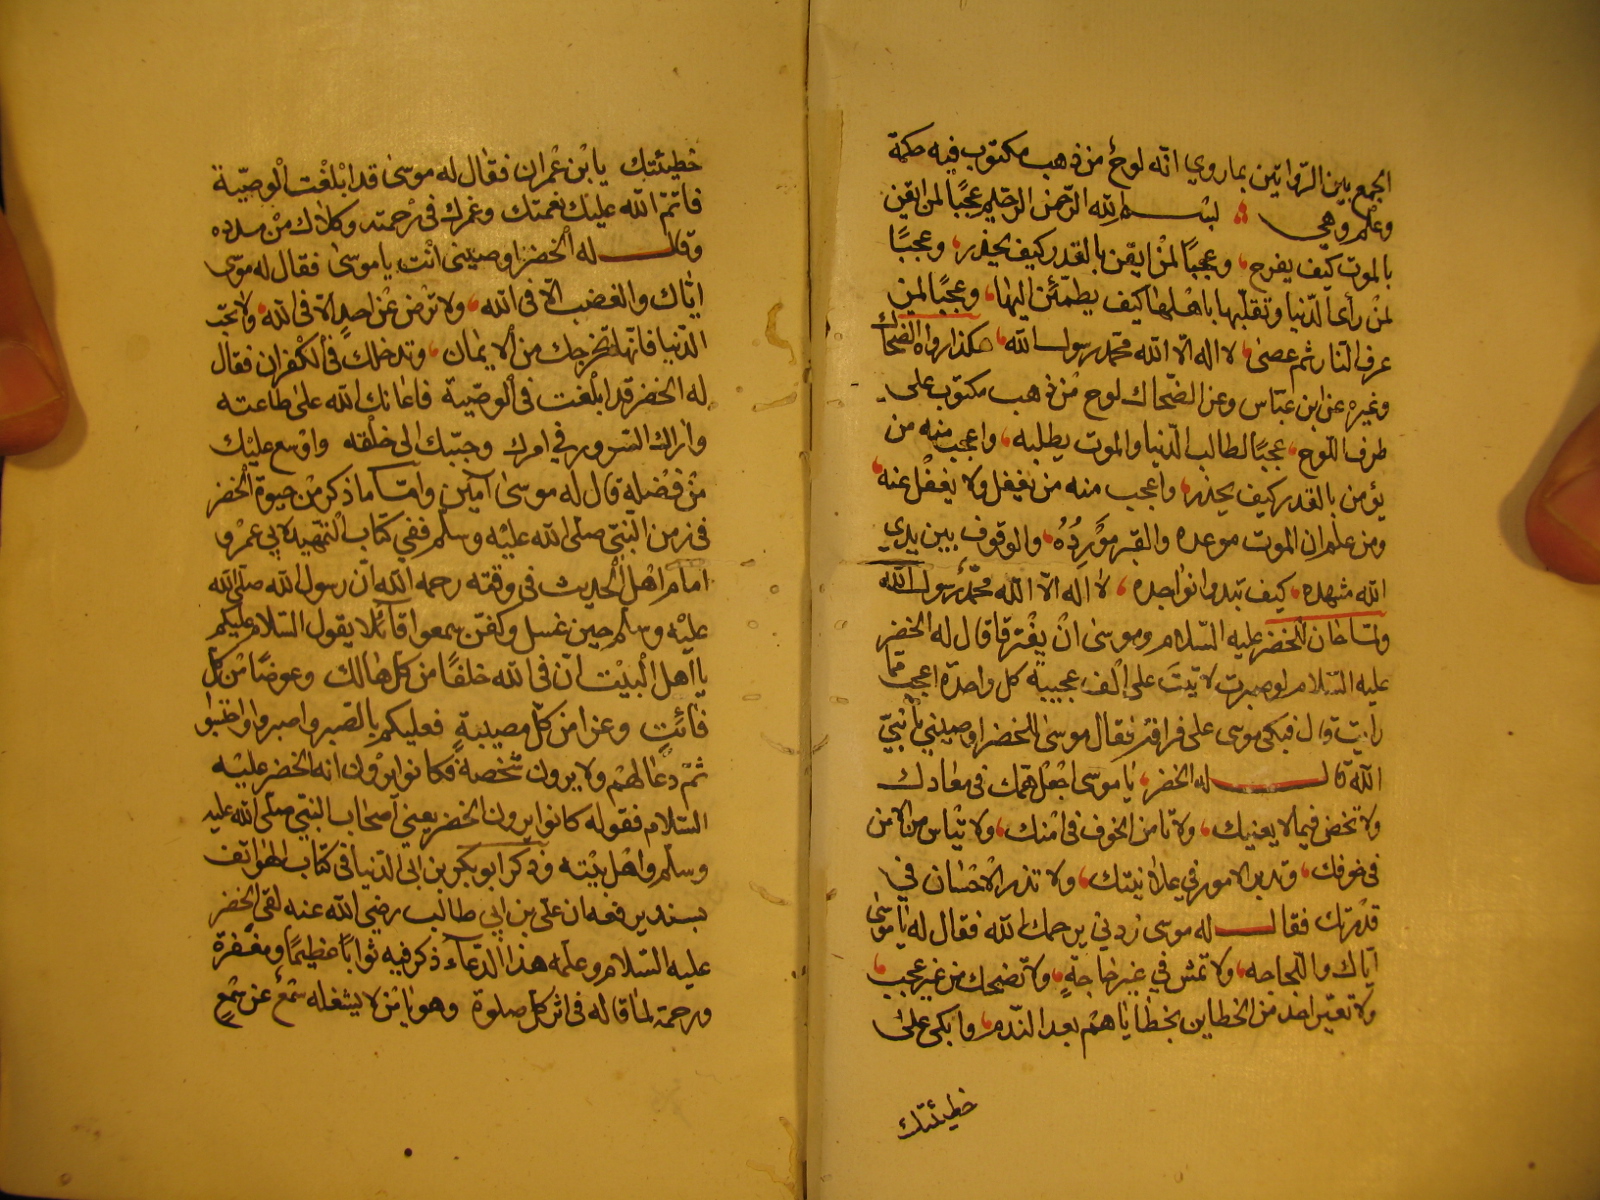 الجمع بين الروايتين بماروي انّه لوحٌ من ذهب مكتوب فيه حكمة
وعلم وهي بسم الله الرّحمن الرّحيم عجبًا لمن ايقن
بالموت كيف يفرح، وعجبًا لمن ايقن بالقدر كيف يحذر، وعجبًا
لمن رأى الدّنيا وتقلّبها باهلها كيف يطمئن اليها، وعجبًا لمن
عرف النّار ثم عصى، لا اله الّا الله محمّد رسول الله، هكذا رواه الضحاك
وغيره عن ابن عبّاس وعن الضّحاك لوح من ذهب مكتوب على
طرف اللّوح، عجبًا لطالب الدّنيا والموت يطلبه، واعجب منه من
يؤمن بالقدر كيف يحذر، واعجب منه من يغفل ولا يغفل عنه،
ومن علم ان الموت موعده والقبر مَوْرِدُهُ، والوقوف بين يدي
الله مشهده، كيف تبدوا نواجده، لا اله الّا الله محمّد رسول الله
ولمّا حان للخضر عليه السّلام وموسى انْ يفْترقا قال له الخضر
عليه السّلام لو صبرت لاتيت على الف عجيبة كل واحدة اعجب ممّا
رايت قال فبكى موسى على فراقه فقال موسى للخضر اوصيني يا نبيّ
الله قال له الخضر، يا موسى اجعل همّك في معادك
ولا تخض فيما لا يعنيك، ولا تامن الخوف في امنك، ولا تيأس من الامن
في خوفك، وتدبر الامور في علانيتك، ولا تذر الاحسان في
قدرتك فقال له موسى زدني يرحمك الله فقال له يا موسى
ايّاك واللّجاجه، ولا تمش في غير حاجةٍ، ولا تضحك من غير عجب،
ولا تعيّر احد من الخطاين بخطاياهم بعد النّدم، وابكى على
خطيئتك
خطيئتك يا بن عمران فقال له موسى قد ابلغت الوصيّة
فاتمّ الله عليك نعمتك وغمرك في رحمته وكلاك من عدوه
وقال له الخضر اوصيني انت يا موسى فقال له موسى
ايّاك والغضب الّا في الله، ولا ترض عن احدٍ الّا في الله، ولا تحبّ
الدّنيا فانّها تخرجك من الايمان، وتدخلك في الكفران فقال
له الخضر قد ابلغت في الوصيّة فاعانك الله على طاعته
واراك السّرور في امرك وحبّبك الى خلقه واوسع عليك
من فضله قال له موسى آمين وامّا ما ذكر من حيوة الخضر
في زمن النّبيّ صلى الله عليه وسلّم ففي كتاب التمهيد لابي عمرو
امام اهل الحديث في وقته رحمه الله انّ رسول الله صلى الله
عليه وسلم حين غسل وكفن سمعوا قائلا يقول السّلام عليكم
يا اهل البيت انّ في الله خلفًا من كلّ هالك وعوضًا من كلّ
فائتٍ وعزا من كلّ مصيبةٍ فعليكم بالصّبر واصبروا واحتسبوا
ثمّ دعا لهم ولا يرون شخصهً فكانوا يرون انه الخضر عليه
السّلام فقوله كانوا يرون الخضر يعني اصحاب النّبيّ صلّى الله عليه
وسلّم واهل بيته وذكر ابو بكر بن ابي الدّنيا في كتاب الهواتف
بسند يرفعه ان على بن ابي طالب رضي الله عنه لقي الخضر
عليه السّلام وعلمه هذا الدّعاء وذكر فيه ثوابًا عظيمًا ومغفرة
ورحمة لمن قاله في اثر كلّ صلوة وهو يا من لا يشغله سَمْعٌ عن سَمْعٍ